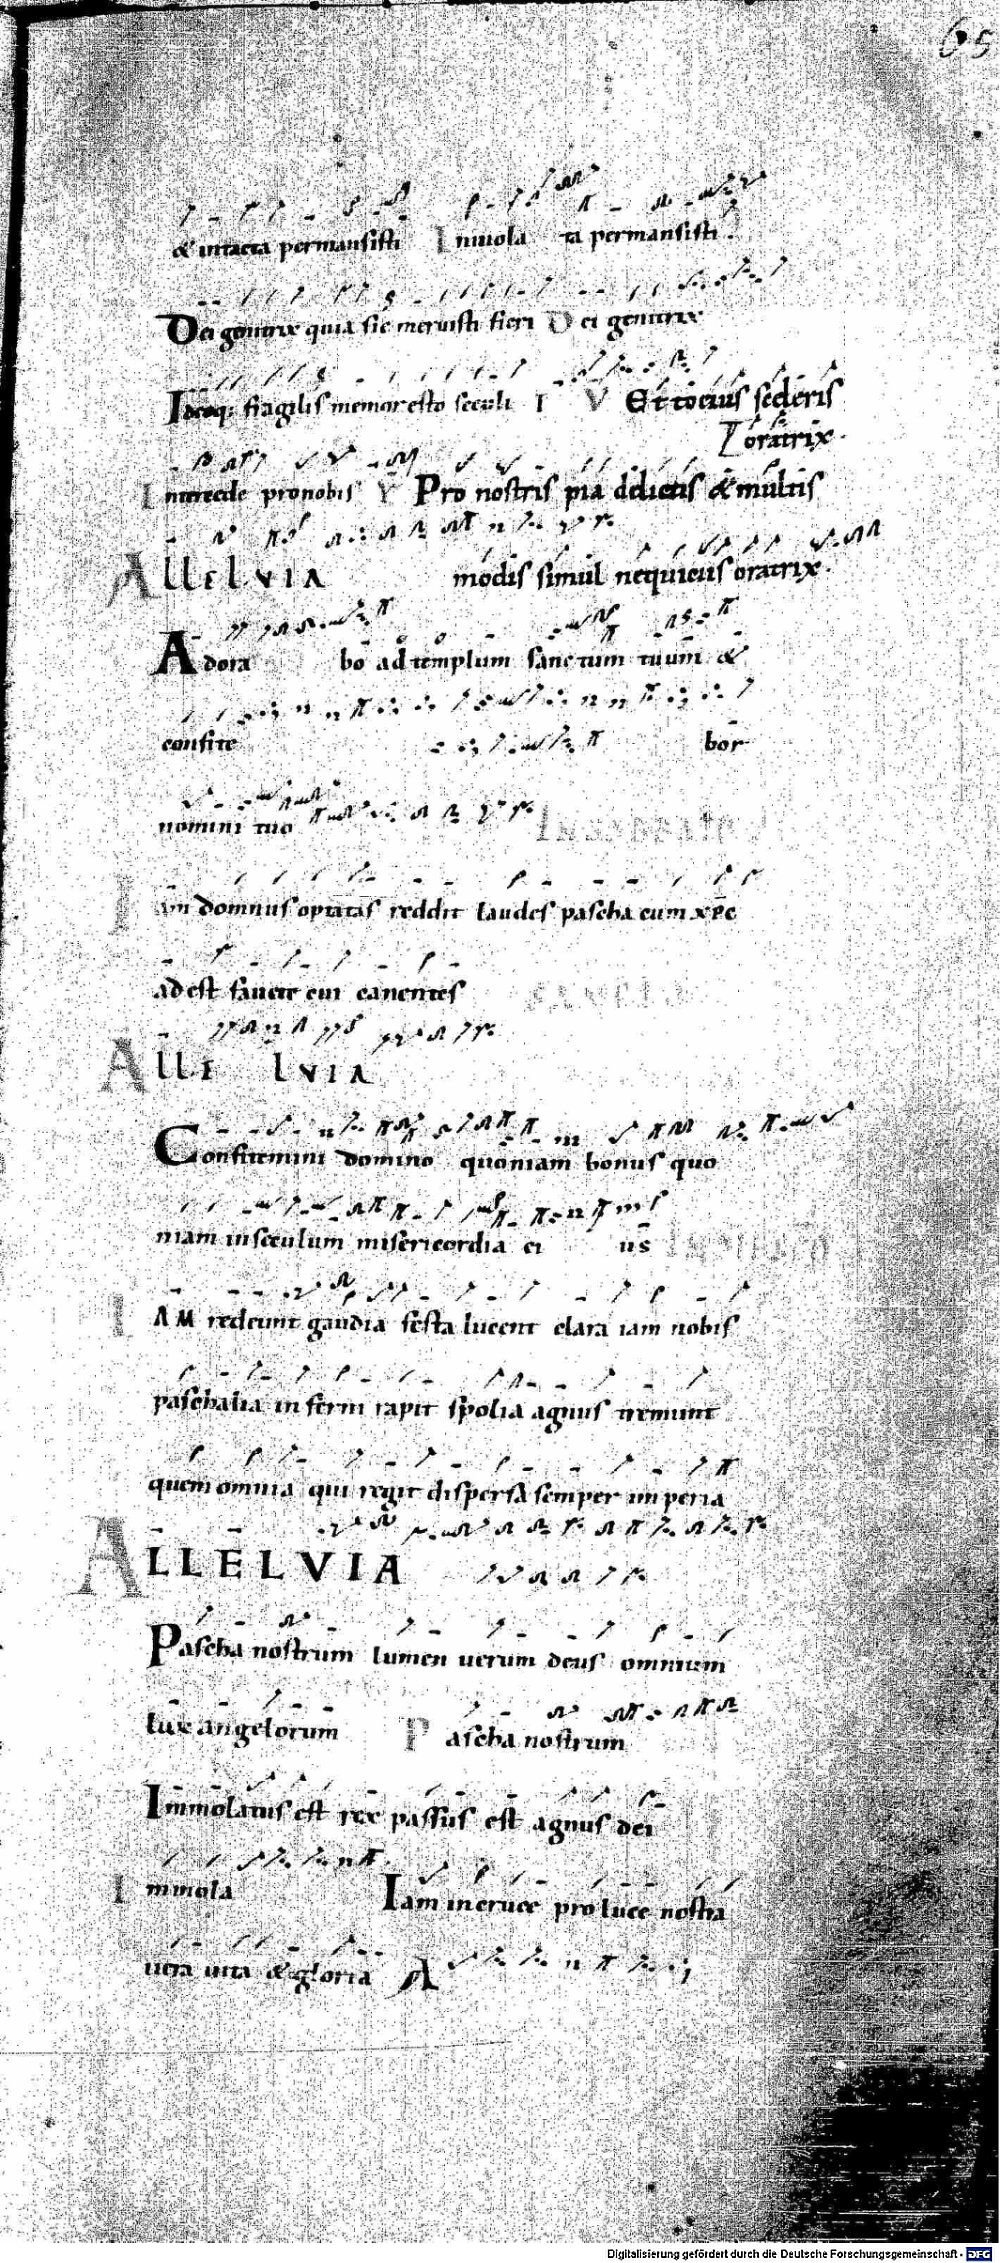 65
& intacta permansisti Inuiola ta permansisti.
Dei genitrix quia sic meruisti fieri Dei genitrix
Ideoq; fragilis memor esto seculi I V Et tocius sceleris
oratrix.
Intercede pro nobis V Pro nostris pia delictis & multis
ALLELVIA modis simul nequicius oratrix.
Adora bo ad templum sanctum tuum &
confite bor
nomini tuo
Iam domnus optatas reddit laudes pascha cum xpc
adest fauete cui canentes
ALLE LVIA
Confitemini domino quoniam bonus quo
niam in seculum misericordia ei us
IAM redeunt gaudia festa lucent clara iam nobis
paschalia inferni rapit spolia agnus tremunt
quem omnia qui regit dispersa semper imperia
ALLELVIA
Pascha nostrum lumen uerum deus omnium
lux angelorum Pascha nostrum
Immolatus est rex passus est agnus dei
Immola Iam in cruce pro luce nostra
uera uita & gloria A
Digitalisierung gefördert durch die Deutsche Forschungsgemeinschaft - DFG